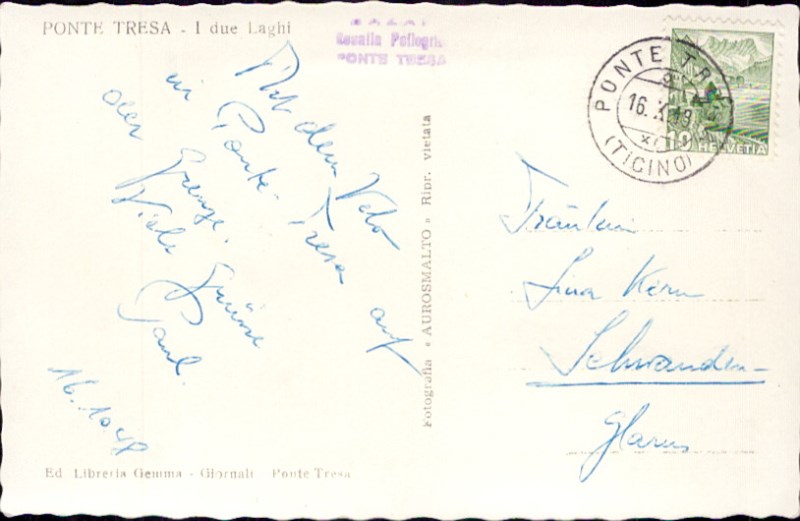 PONTE TRESA - I due Laghi
Rosalia Pellegri
PONTE TRESA
Mit dem Velo
in Ponte-Tresa auf
der Grenze.
Viele Grüsse
Paul.
16.10.48
Ed Libreria Gemma - Giornali Ponte Tresa
Fotografia «AUROSMALTO» Ripr. vietata
PONTE TRESA
16. X.
(TICINO)
10
HELVETIA
Fräulein
Lina Kern
Schwanden-
Glarus